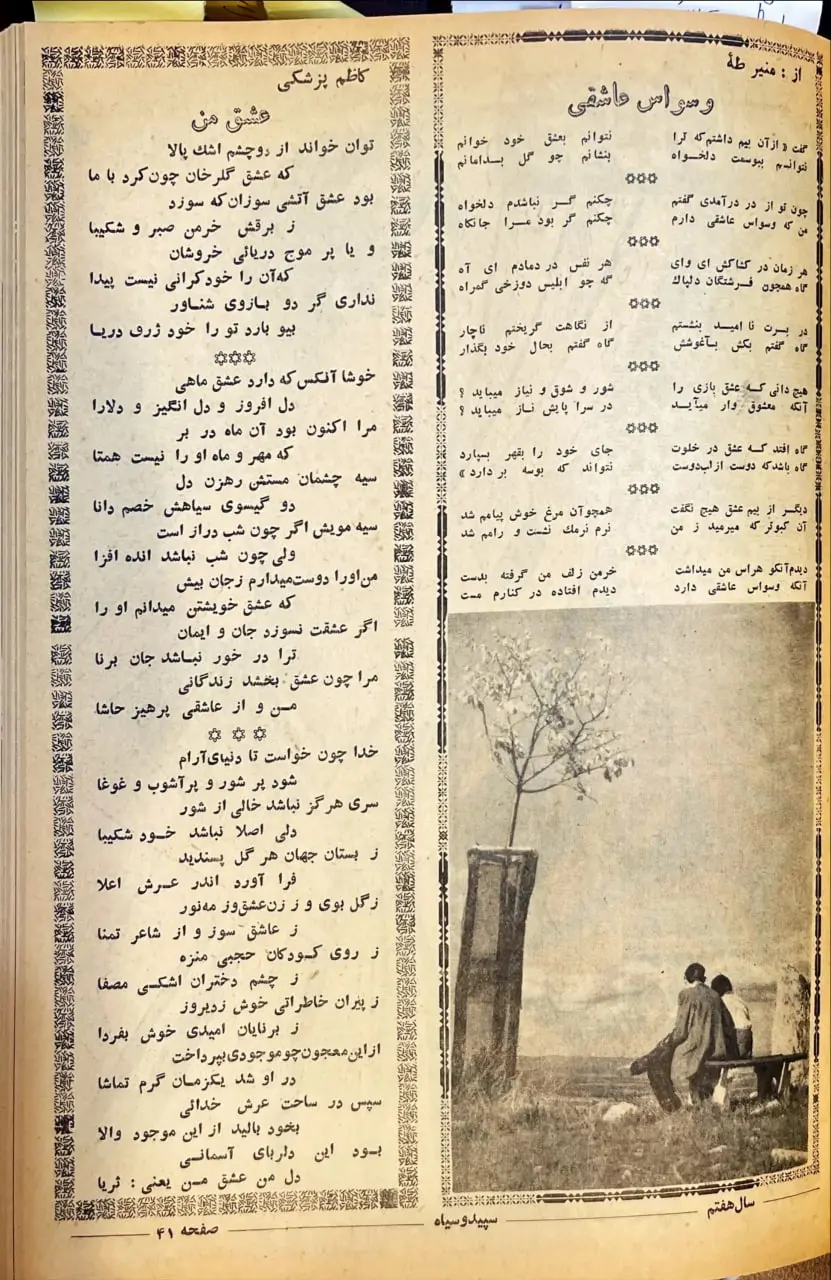 از : منیر طهٔ
وسواس عاشقی
گفت « از آن بیم داشتم که ترا نتوانم بعشق خود خوانم
نتوانم ببوسمت دلخواه بنشانم چو گل بدامانم
✡✡✡
چون تو از در درآمدی گفتم چکنم گر نباشدم دلخواه
من که وسواس عاشقی دارم چکنم گر بود مرا جانکاه
✡✡✡
هر زمان در کشاکش ای وای هر نفس در دمادم ای آه
گاه همچون فرشتگان دلپاک گه چو ابلیس دوزخی گمراه
✡✡✡
در برت نا امید بنشستم از نگاهت گریختم ناچار
گاه گفتم بکش بآغوشش گاه گفتم بحال خود بگذار
✡✡✡
هیچ دانی که عشق بازی را شور و شوق و نیاز میباید ؟
آنکه معشوق وار میآید در سرا پایش ناز میباید ؟
✡✡✡
گاه افتد که عشق در خلوت جای خود را بقهر بسپارد
گاه باشد که دوست از لب دوست نتواند که بوسه بردارد »
✡✡✡
دیگر از بیم عشق هیچ نگفت همچو آن مرغ خوش پیامم شد
آن کبوتر که میرمید ز من نرم نرمك نشست و رامم شد
✡✡✡
دیدم آنکو هراس من میداشت خرمن زلف من گرفته بدست
آنکه وسواس عاشقی دارد دیدم افتاده در کنارم مست
کاظم پزشکی
عشق من
توان خواند از دوچشم اشك پالا
که عشق گلرخان چون کرد با ما
بود عشق آتشی سوزان که سوزد
ز برقش خرمن صبر و شکیبا
و یا پر موج دریائی خروشان
که آن را خود کرانی نیست پیدا
نداری گر دو بازوی شناور
بیو بارد تو را خود ژرف دریا
✡✡✡
خوشا آنکس که دارد عشق ماهی
دل افروز و دل انگیز و دلارا
مرا اکنون بود آن ماه در بر
که مهر و ماه او را نیست همتا
سیه چشمان مستش رهزن دل
دو گیسوی سیاهش خصم دانا
سیه مویش اگر چون شب دراز است
ولی چون شب نباشد انده افزا
من اورا دوست میدارم زجان بیش
که عشق خویشتن میدانم او را
اگر عشقت نسوزد جان و ایمان
ترا در خور نباشد جان برنا
مرا چون عشق بخشد زندگانی
من و از عاشقی پرهیز حاشا
✡ ✡ ✡
خدا چون خواست تا دنیای آرام
شود پر شور و پر آشوب و غوغا
سری هرگز نباشد خالی از شور
دلی اصلا نباشد خود شکیبا
ز بستان جهان هر گل پسندید
فرا آورد اندر عرش اعلا
زگل بوی و ز زن عشق وز مه نور
ز عاشق سوز و از شاعر تمنا
ز روی کودکان حجبی منزه
ز چشم دختران اشکی مصفا
ز پیران خاطراتی خوش زدیروز
ز برنایان امیدی خوش بفردا
از این معجون چو موجودی بپرداخت
در او شد یکزمان گرم تماشا
سپس در ساحت عرش خدائی
بخود بالید از این موجود والا
بود این دلربای آسمانی
دل من عشق من یعنی : ثریا
سال هفتم
سپید و سیاه
صفحه ۴۱